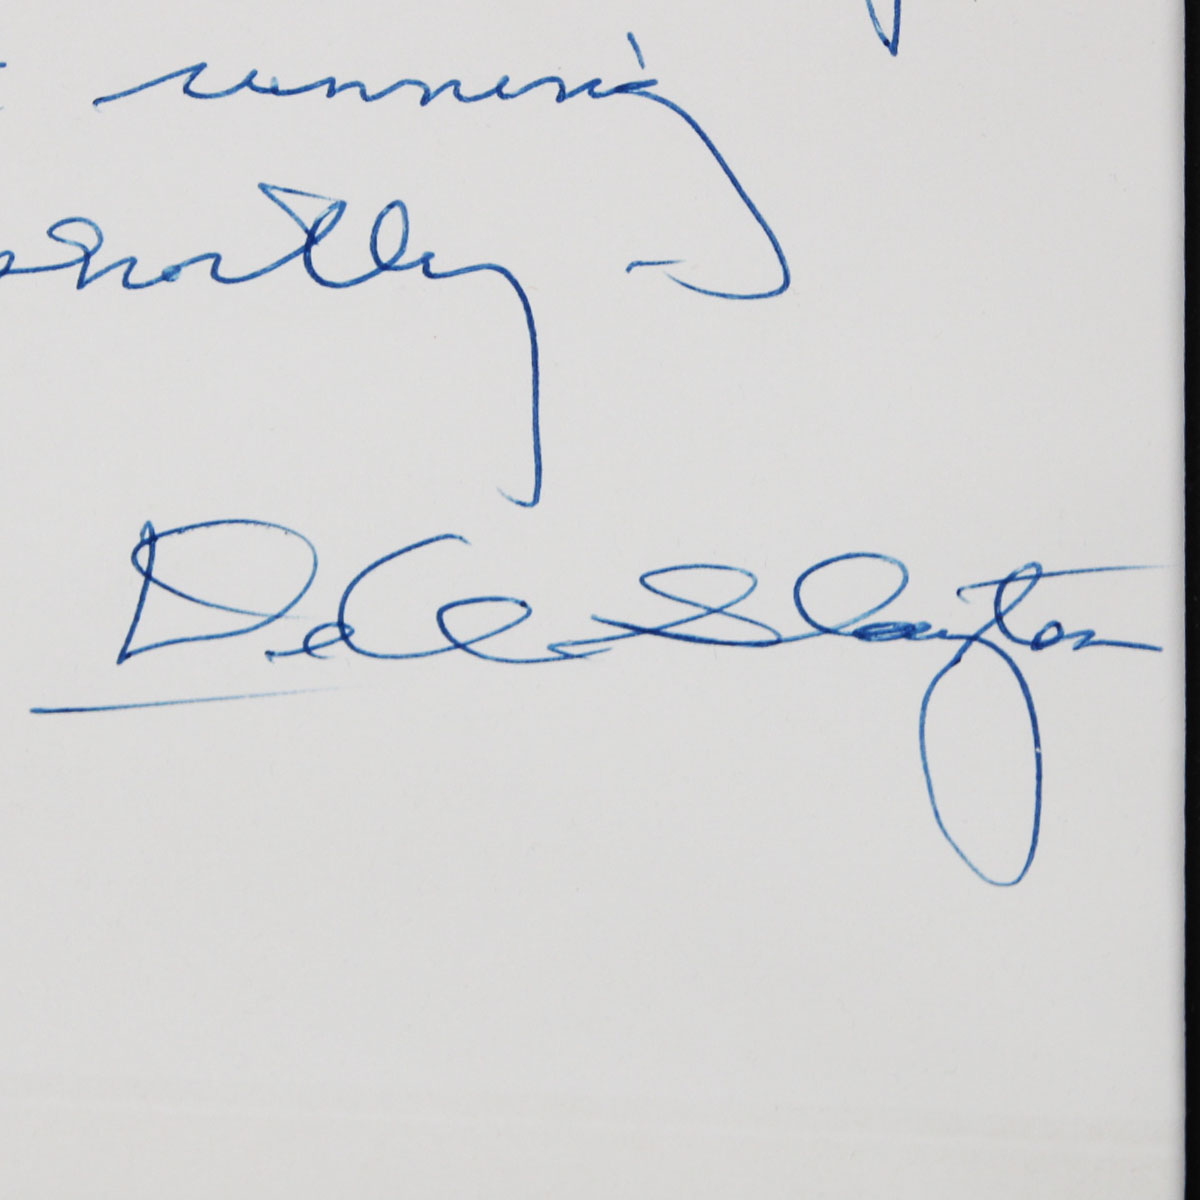 running
shortly -
Deke Slayton